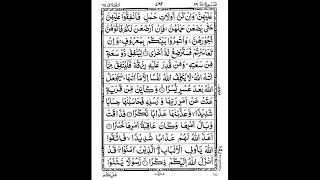 عَلَيْهِنَّ وَاِنْ كُنَّ اُولَاتِ حَمْلٍ فَاَنْفِقُوْا عَلَيْهِنَّ
حَتّٰى يَضَعْنَ حَمْلَهُنَّ فَاِنْ اَرْضَعْنَ لَكُمْ فَاٰتُوْهُنَّ
اُجُوْرَهُنَّ وَاْتَمِرُوْا بَيْنَكُمْ بِمَعْرُوْفٍ وَاِنْ
تَعَاسَرْتُمْ فَسَتُرْضِعُ لَهٗٓ اُخْرٰى لِيُنْفِقْ ذُوْ سَعَةٍ
مِّنْ سَعَتِهٖ وَمَنْ قُدِرَ عَلَيْهِ رِزْقُهٗ فَلْيُنْفِقْ مِمَّآ
اٰتٰىهُ اللّٰهُ لَا يُكَلِّفُ اللّٰهُ نَفْسًا اِلَّا مَآ اٰتٰىهَا سَيَجْعَلُ
اللّٰهُ بَعْدَ عُسْرٍ يُّسْرًا وَكَاَيِّنْ مِّنْ قَرْيَةٍ
عَتَتْ عَنْ اَمْرِ رَبِّهَا وَرُسُلِهٖ فَحَاسَبْنٰهَا حِسَابًا
شَدِيْدًا وَّعَذَّبْنٰهَا عَذَابًا نُّكْرًا فَذَاقَتْ
وَبَالَ اَمْرِهَا وَكَانَ عَاقِبَةُ اَمْرِهَا خُسْرًا
اَعَدَّ اللّٰهُ لَهُمْ عَذَابًا شَدِيْدًا فَاتَّقُوا
اللّٰهَ يٰٓاُولِى الْاَلْبَابِ الَّذِيْنَ اٰمَنُوْا قَدْ
اَنْزَلَ اللّٰهُ اِلَيْكُمْ ذِكْرًا رَّسُوْلًا يَّتْلُوْا